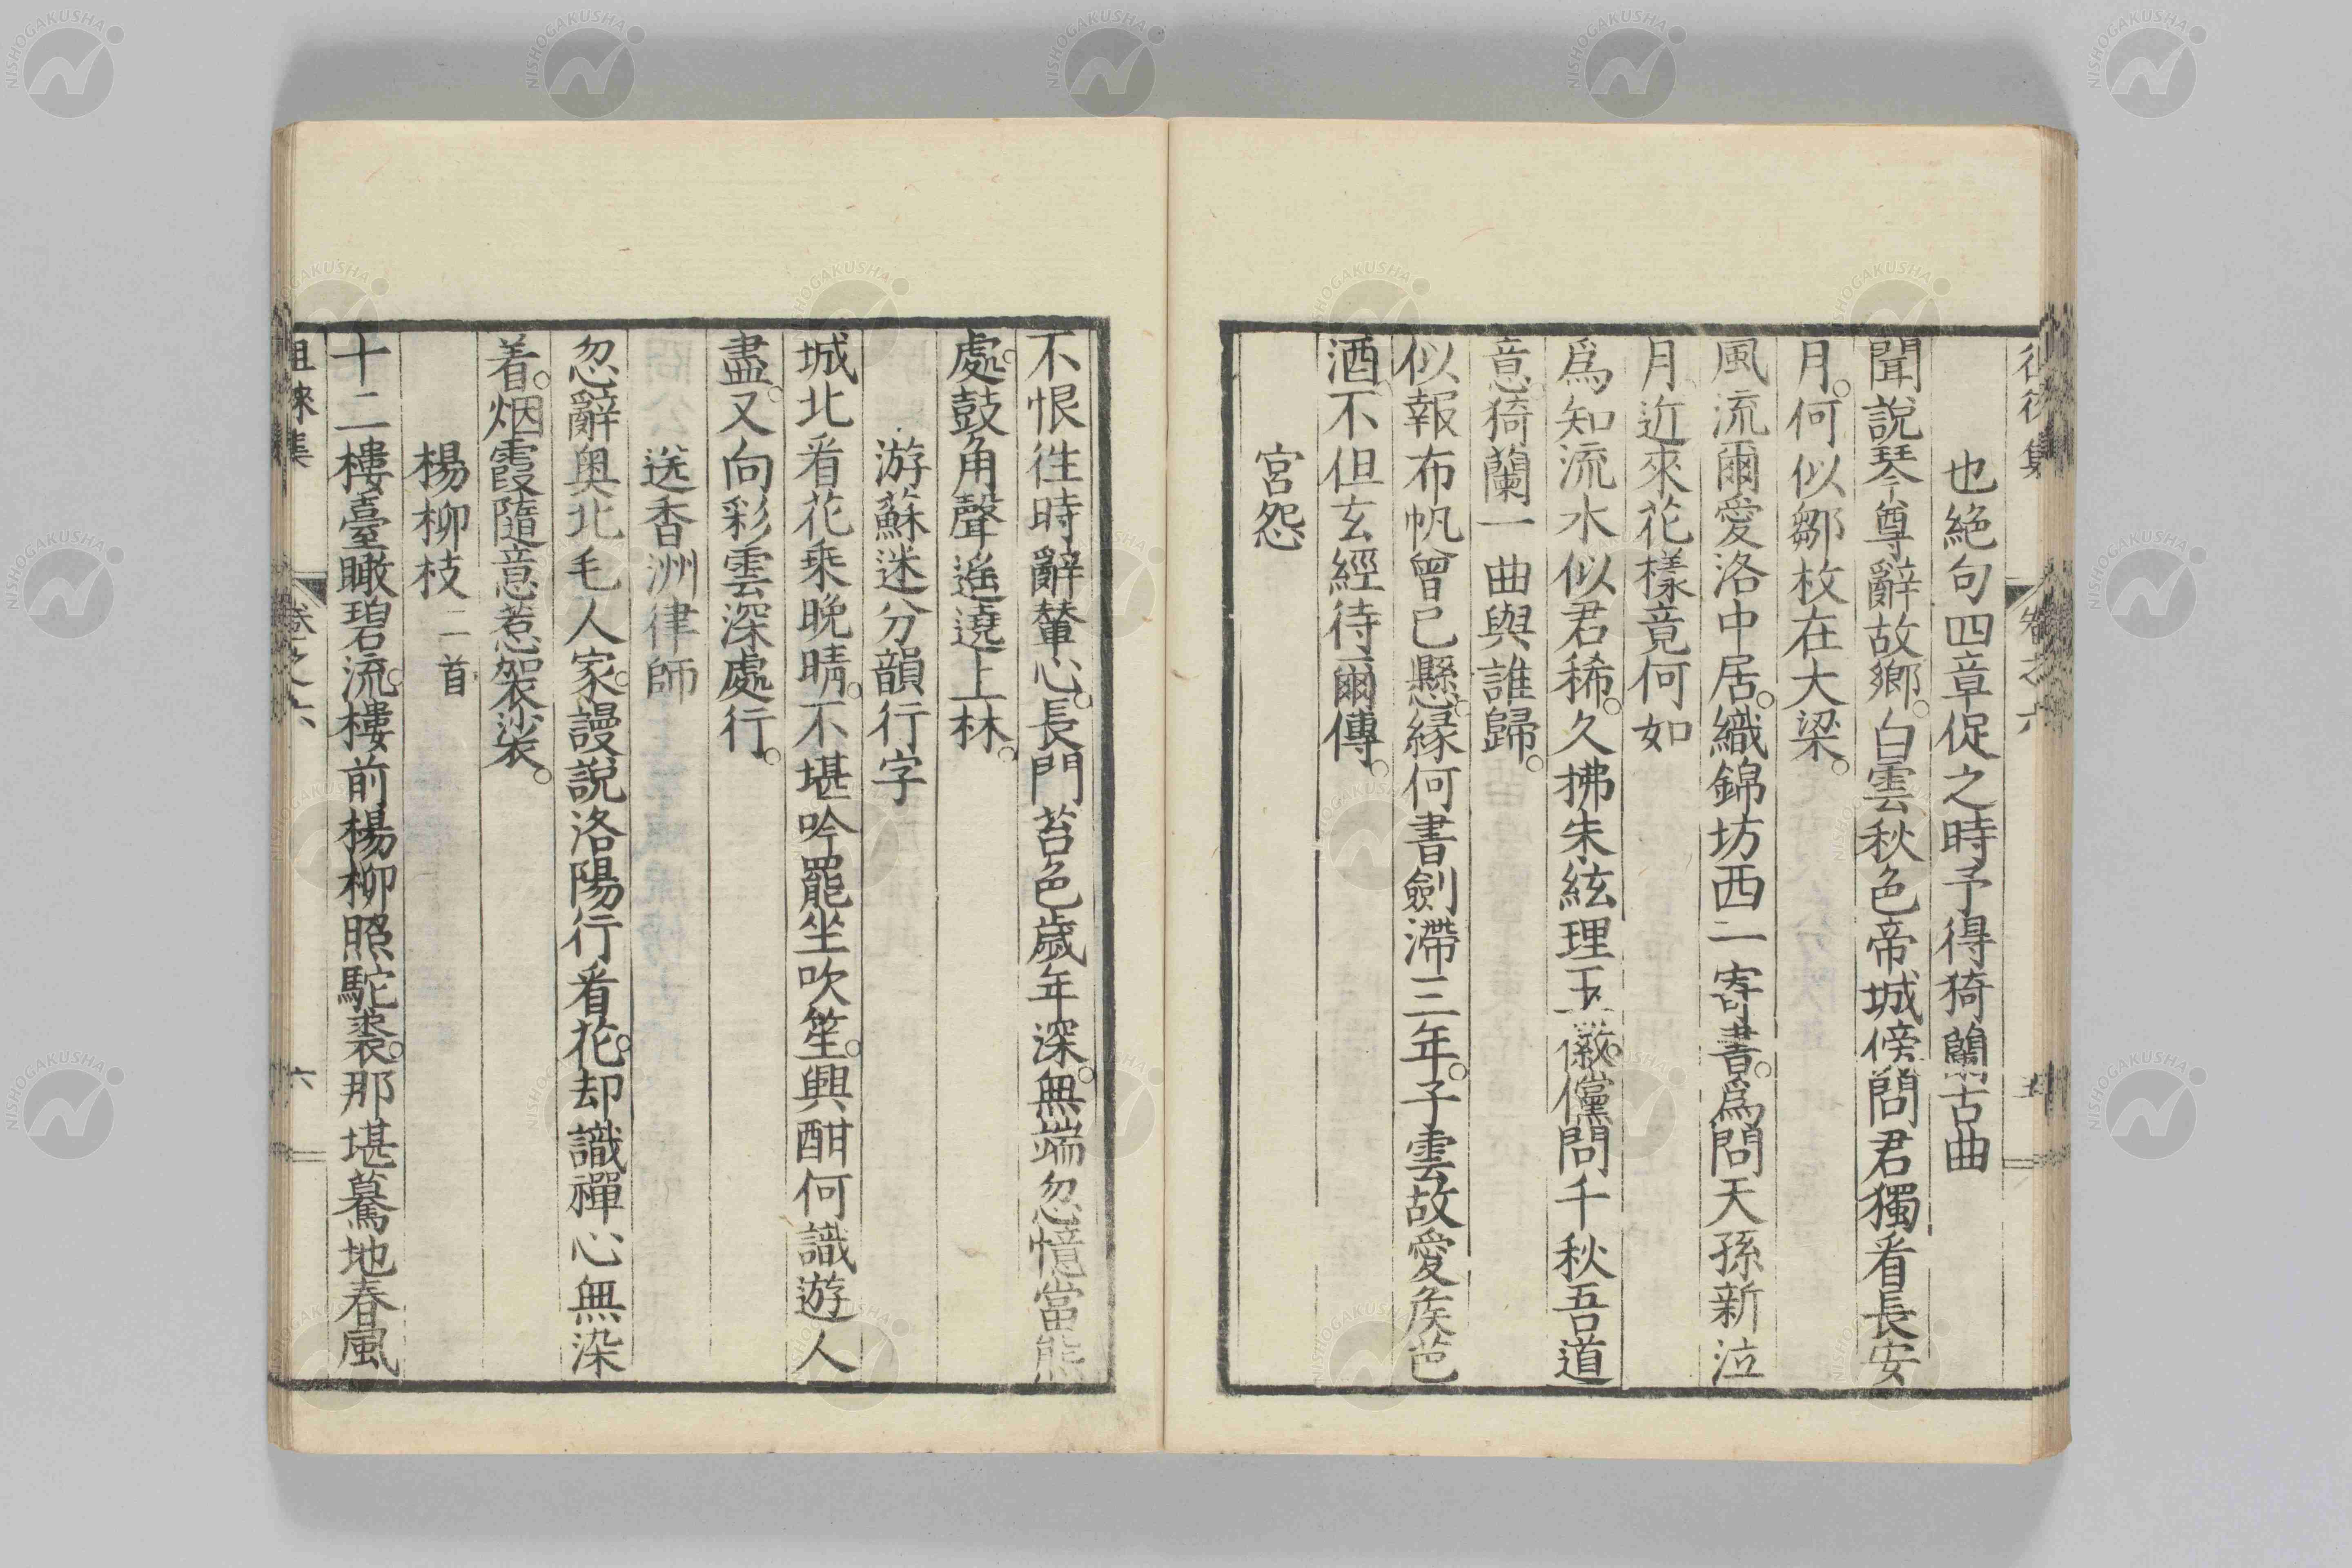 也絶句四章促之時予得猗蘭古曲
聞說琴尊辭故鄉。白雲秋色帝城傍。問君獨看長安
月。何似鄒枚在大梁。
風流爾愛洛中居。織錦坊西一寄書。爲問天孫新泣
月近來花樣竟何如
爲知流水似君稀。久拂朱絃理玉徽。儻問千秋吾道
意。猗蘭一曲與誰歸。
似報布帆曾已懸。緣何書劍滯三年。子雲故愛矦芭
酒。不但玄經待爾傳。
宮怨
不恨往時辭輦心。長門苔色歲年深。無端忽憶當熊
處。鼓角聲遙遶上林。
游蘇迷分韻行字
城北看花乘晚晴。不堪吟罷坐吹笙。興酣何識遊人
盡。又向彩雲深處行。
送香洲律師
忽辭奧北毛人家。謾說洛陽行看花。却識禪心無染
着。烟霞隨意惹袈裟。
楊柳枝 二首
十二樓臺瞰碧流。樓前楊柳照駝裘。那堪驀地春風
徂徠集 卷之六 六
NISHOGAKUSHA